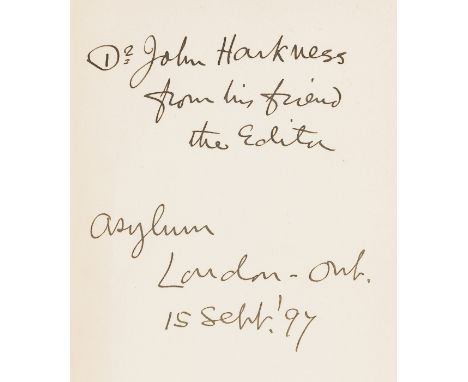 Dr John Harkness
from his friend
the Editor
Asylum
London - Ont.
15 Sept.' 97